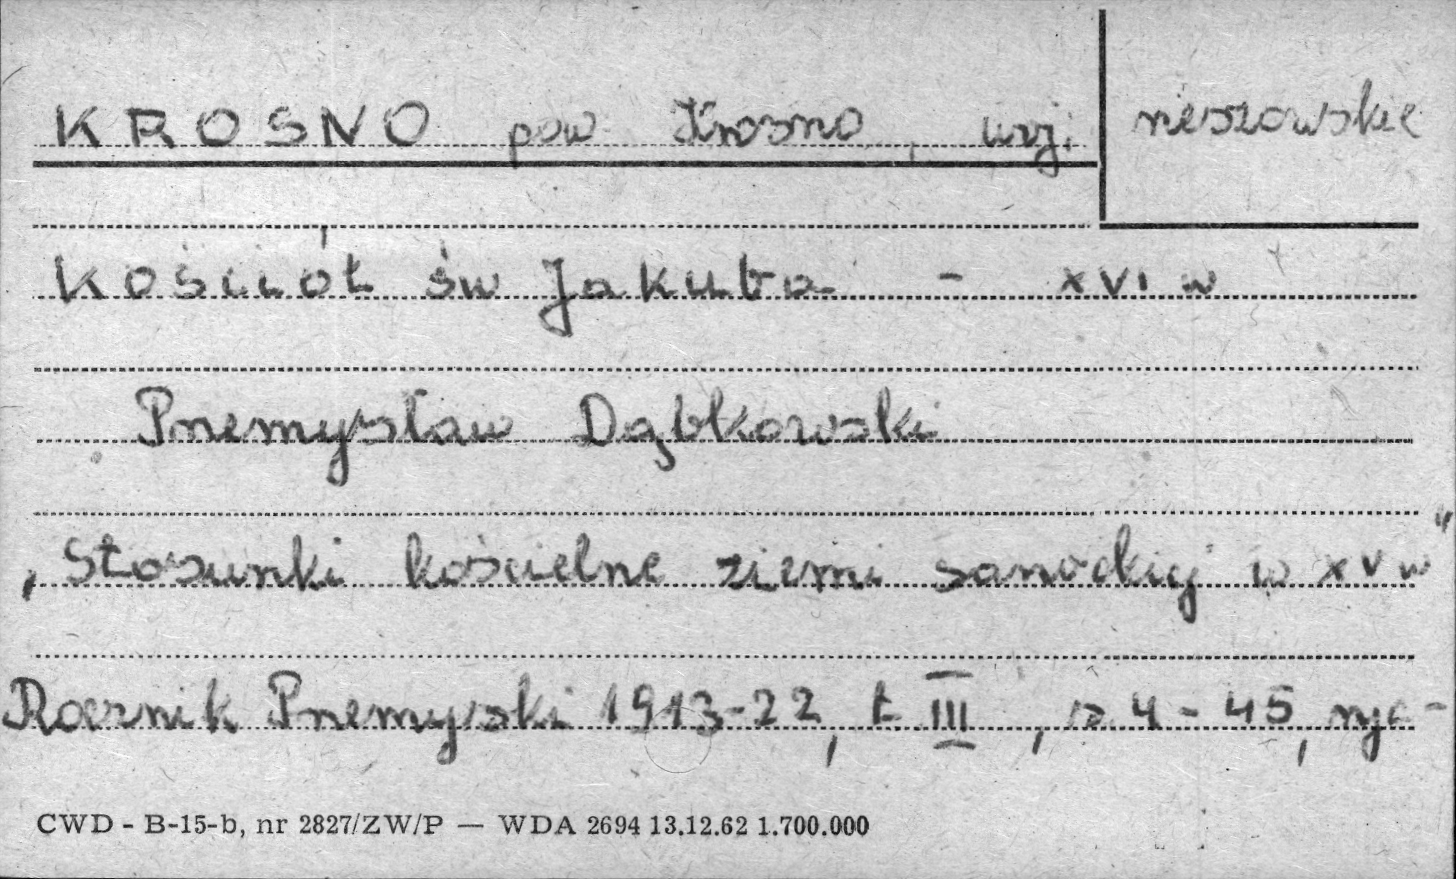 KROSNO pow. Krosno, woj. rzeszowskie
Kościół św Jakuba - XVI w
Przemysław Dąbkowski
„Stosunki kościelne ziemi sanockiej w XV w"
Rocznik Przemyski 1913-22, t. III, s. 4-45, ryc-
CWD - B-15-b, nr 2827/ZW/P — WDA 2694 13.12.62 1.700.000